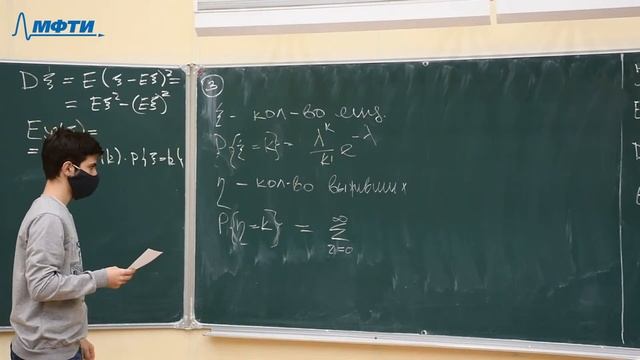 МФТИ
Dξ = E(ξ - Eξ)² =
= Eξ² - (Eξ)²
=
(k) · P{ξ=k}
③
ξ - кол-во
P{ξ=k} = λᵏ/k! e^{-λ}
η - кол-во выживших
P{η=k} = ∑_{n=0}^{∞}